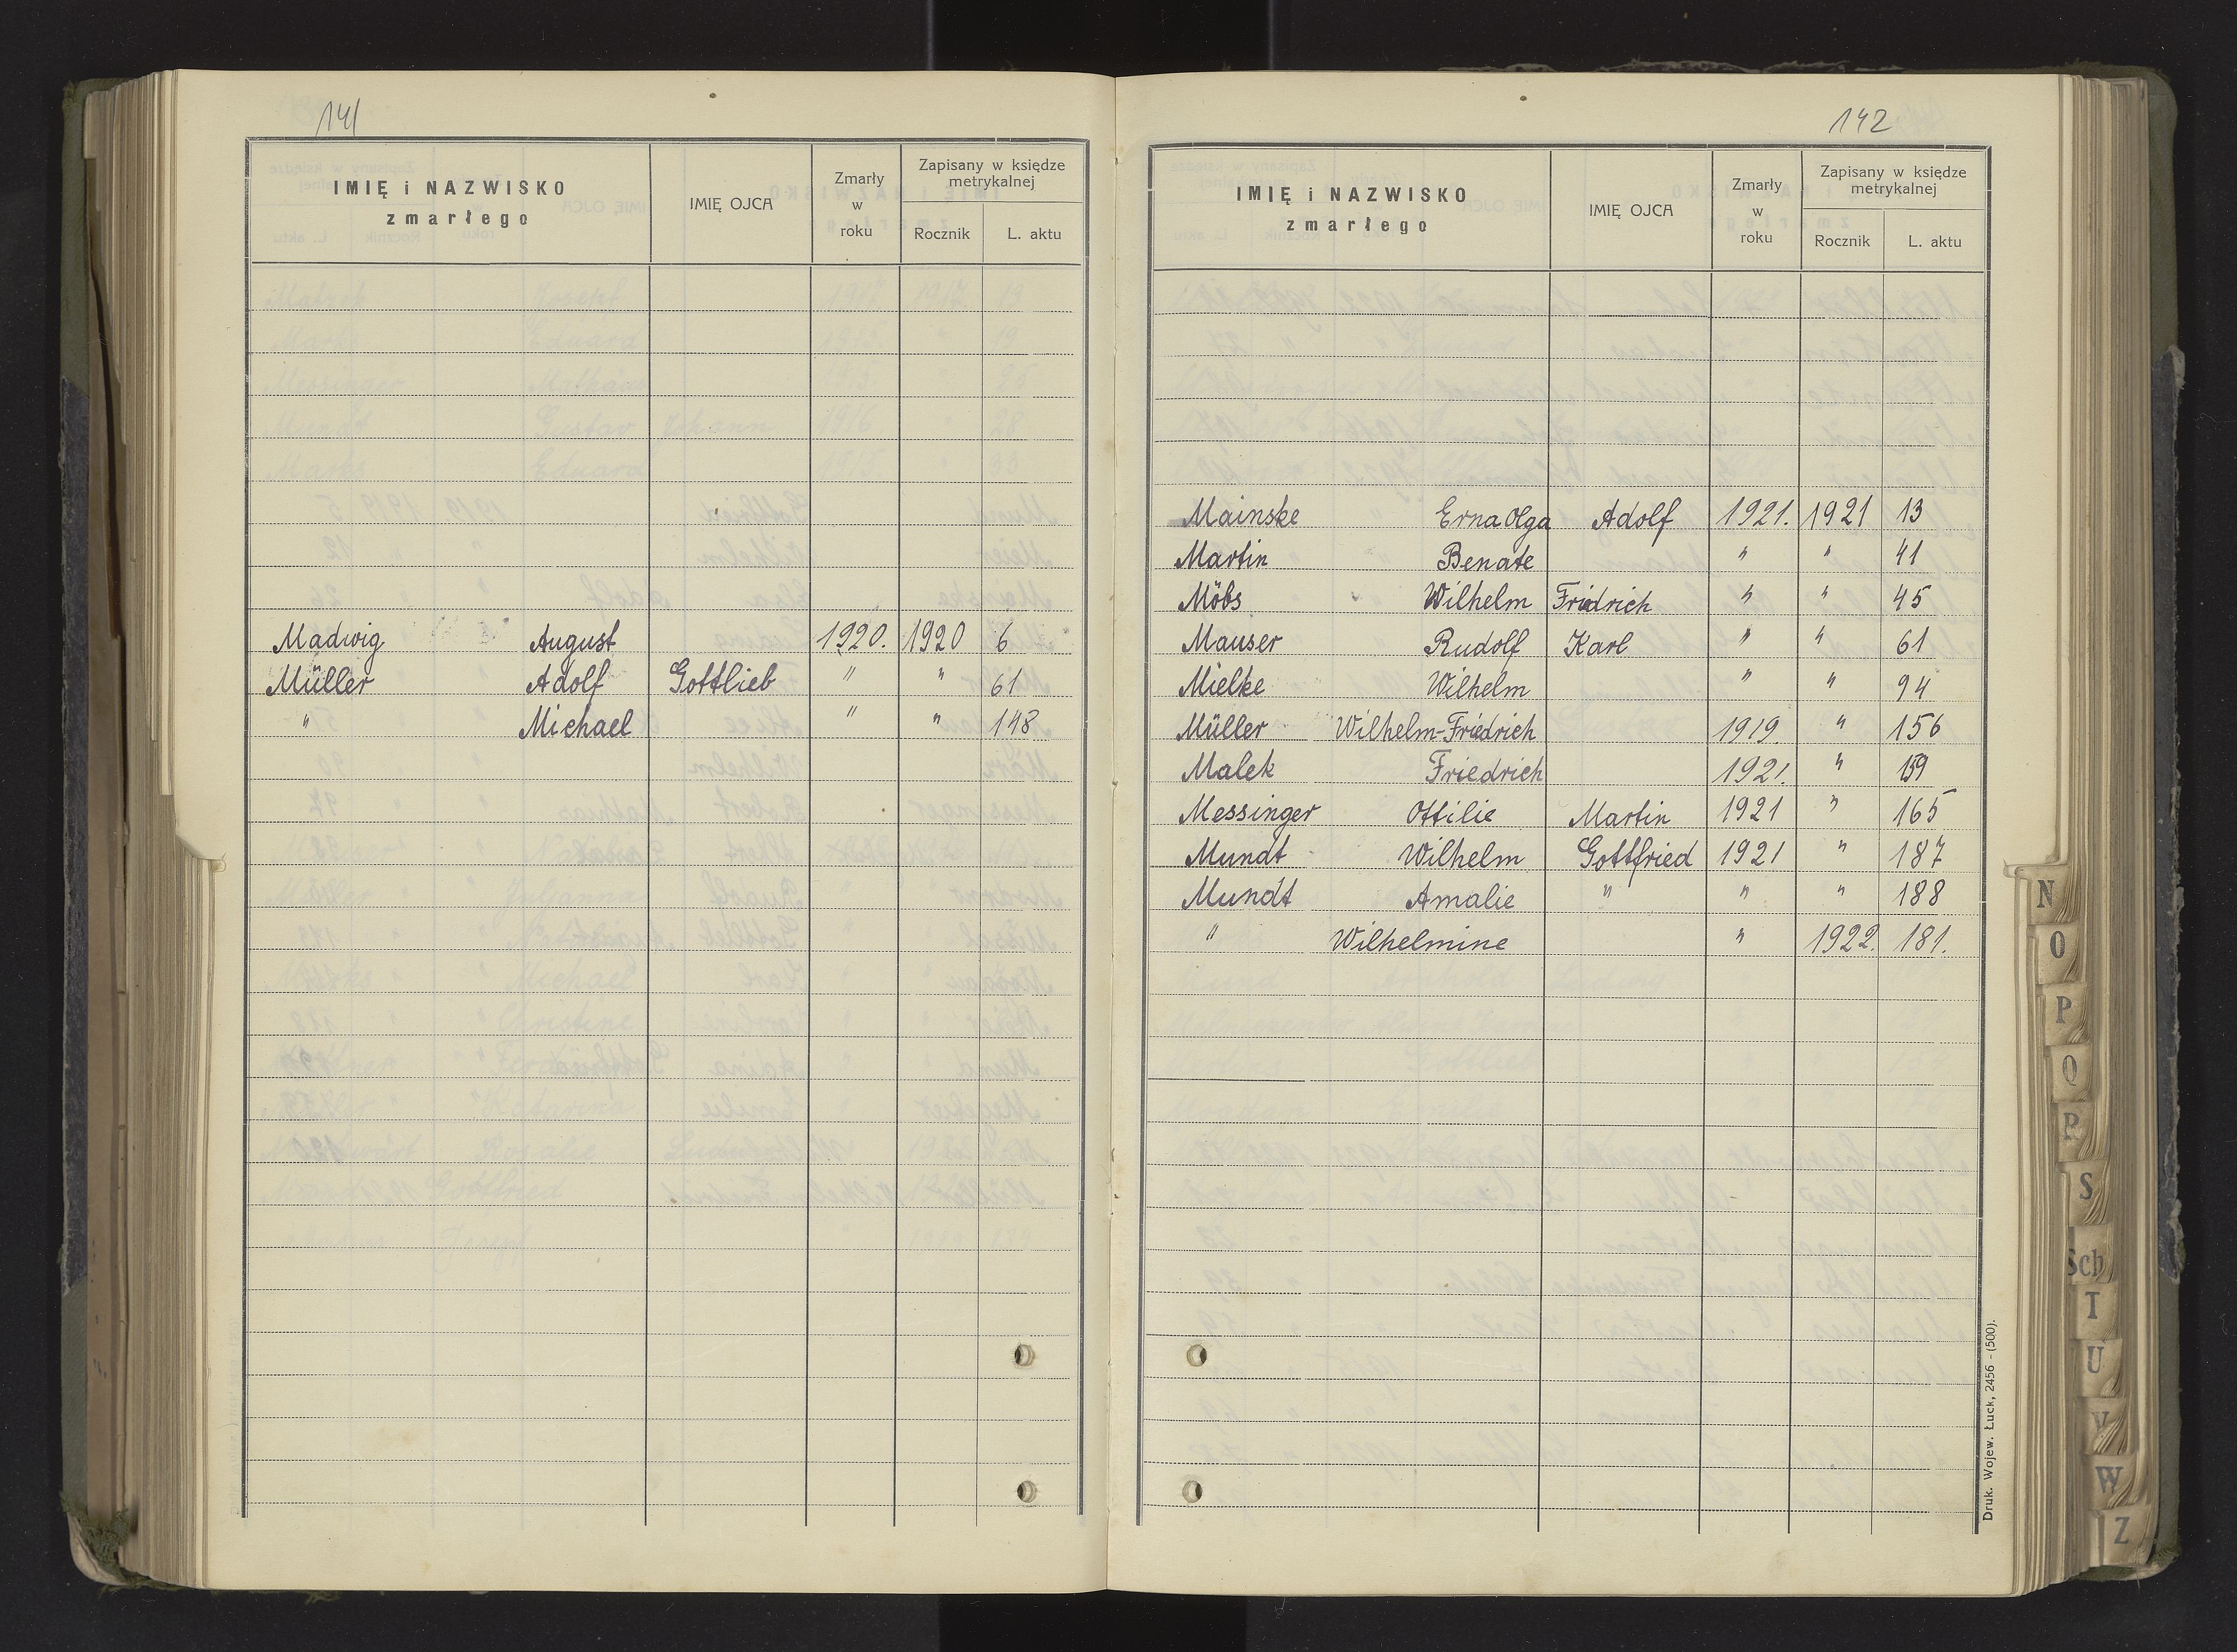 141
IMIĘ i NAZWISKO
zmarłego
IMIĘ OJCA
Zmarły
w
roku
Zapisany w księdze
metrykalnej
Rocznik
L. aktu
Madwig August 1920. 1920 6
Müller Adolf Gottlieb " " 61
" Michael " " 148
142
IMIĘ i NAZWISKO
zmarłego
IMIĘ OJCA
Zmarły
w
roku
Zapisany w księdze
metrykalnej
Rocznik
L. aktu
Mainske Erna Olga Adolf 1921. 1921 13
Martin Benate " " 41
Möbs Wilhelm Fridrich " " 45
Mauser Rudolf Karl " " 61
Mielke Wilhelm " " 94
Müller Wilhelm-Friedrich 1919. " 156
Malek Friedrich 1921. " 159
Messinger Ottilie Martin 1921 " 165
Mundt Wilhelm Gottfried 1921 " 187
Mundt Amalie " " " 188
" Wilhelmine " 1922. 181.
Druk. Wojew. Łuck, 2456 - (500).
N
O
P
Q
R
S
Sch
T
U
V
W
Z